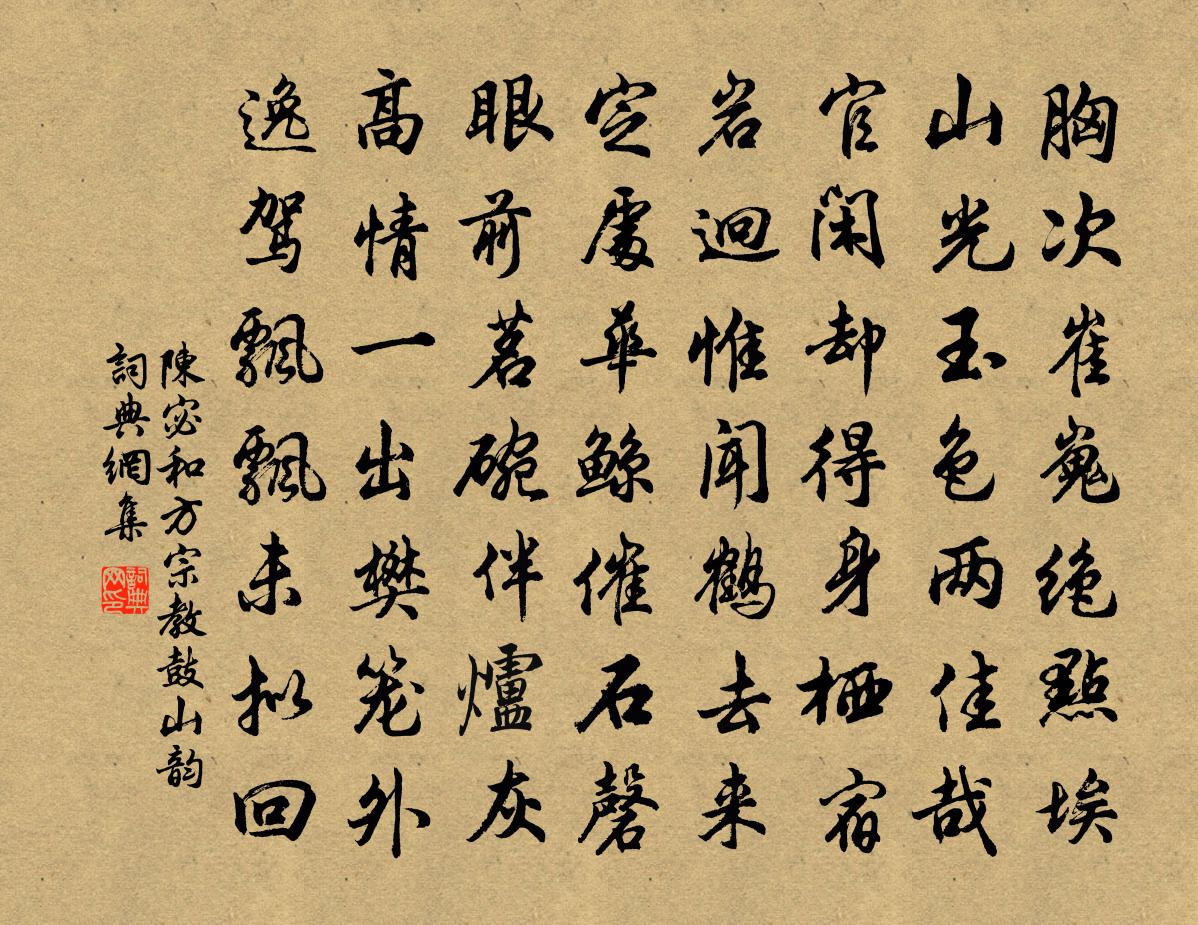 胸次崔嵬绝點埃
山光玉色两佳哉
官闲却得身栖宿
岩迥惟闻鶴去来
定處華鲸催石磬
眼前茗碗伴爐灰
高情一出樊笼外
逸驾飄飄未拟回
陳宓和方宗教鼓山韵
詞典網集
詞典
网印